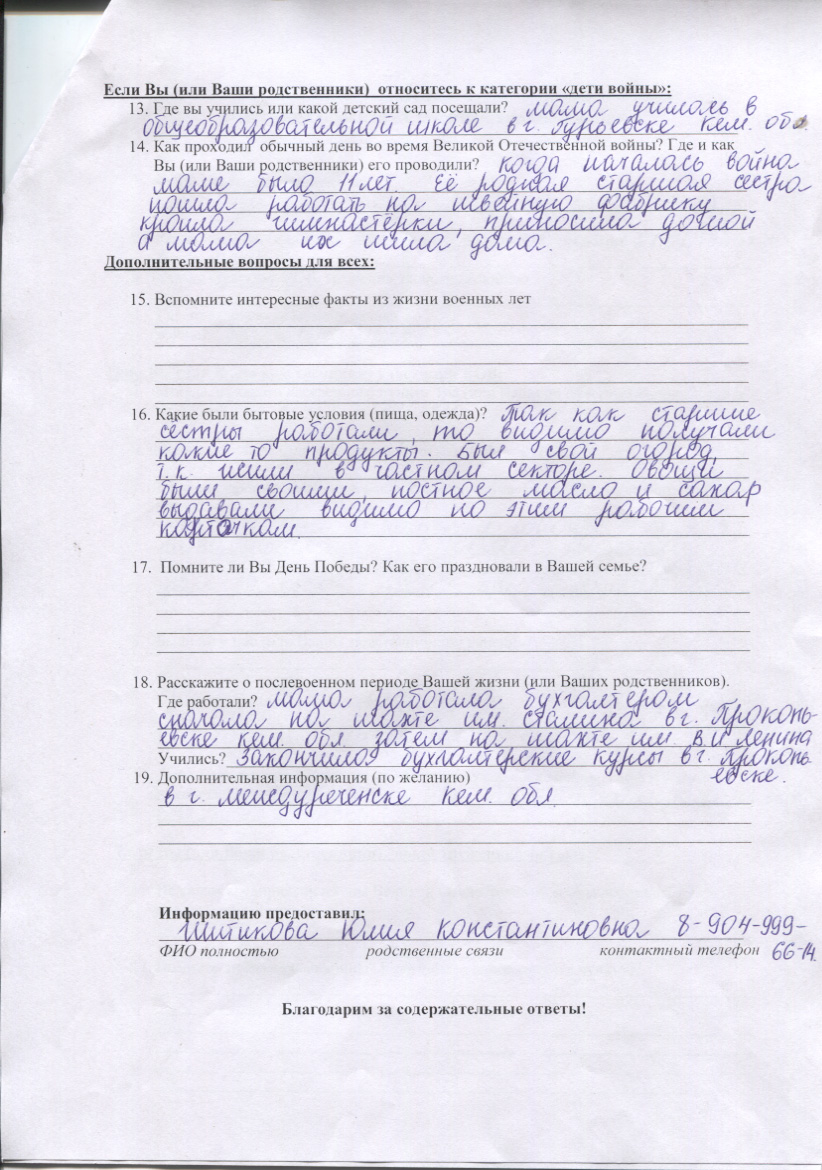 Если Вы (или Ваши родственники) относитесь к категории «дети войны»:
13. Где вы учились или какой детский сад посещали? мама училась в
общеобразовательной школе в г. Гурьевске Кем. обл.
14. Как проходил обычный день во время Великой Отечественной войны? Где и как
Вы (или Ваши родственники) его проводили? когда началась война
маме было 11 лет. Её родная старшая сестра
пошла работать на швейную фабрику
кроила гимнастёрки, приносила домой
а мама их шила дома.
Дополнительные вопросы для всех:
15. Вспомните интересные факты из жизни военных лет
16. Какие были бытовые условия (пища, одежда)? Так как старшие
сестры работали, то видимо получали
какие то продукты. Был свой огород,
т.к. жили в частном секторе. Овощи
были своими, постное масло и сахар
выдавали видимо по этим рабочим
карточкам.
17. Помните ли Вы День Победы? Как его праздновали в Вашей семье?
18. Расскажите о послевоенном периоде Вашей жизни (или Ваших родственников).
Где работали? мама работала бухгалтером
сначала на шахте им. Сталина в г. Прокопь-
евске Кем. обл. затем на шахте им. В И Ленина
Учились? Закончила бухгалтерские курсы в г. Прокопь
евске.
19. Дополнительная информация (по желанию)
в г. Междуреченске Кем. обл.
Информацию предоставил:
Шитикова Юлия Константиновна 8-904-999-
66-14.
ФИО полностью родственные связи контактный телефон
Благодарим за содержательные ответы!